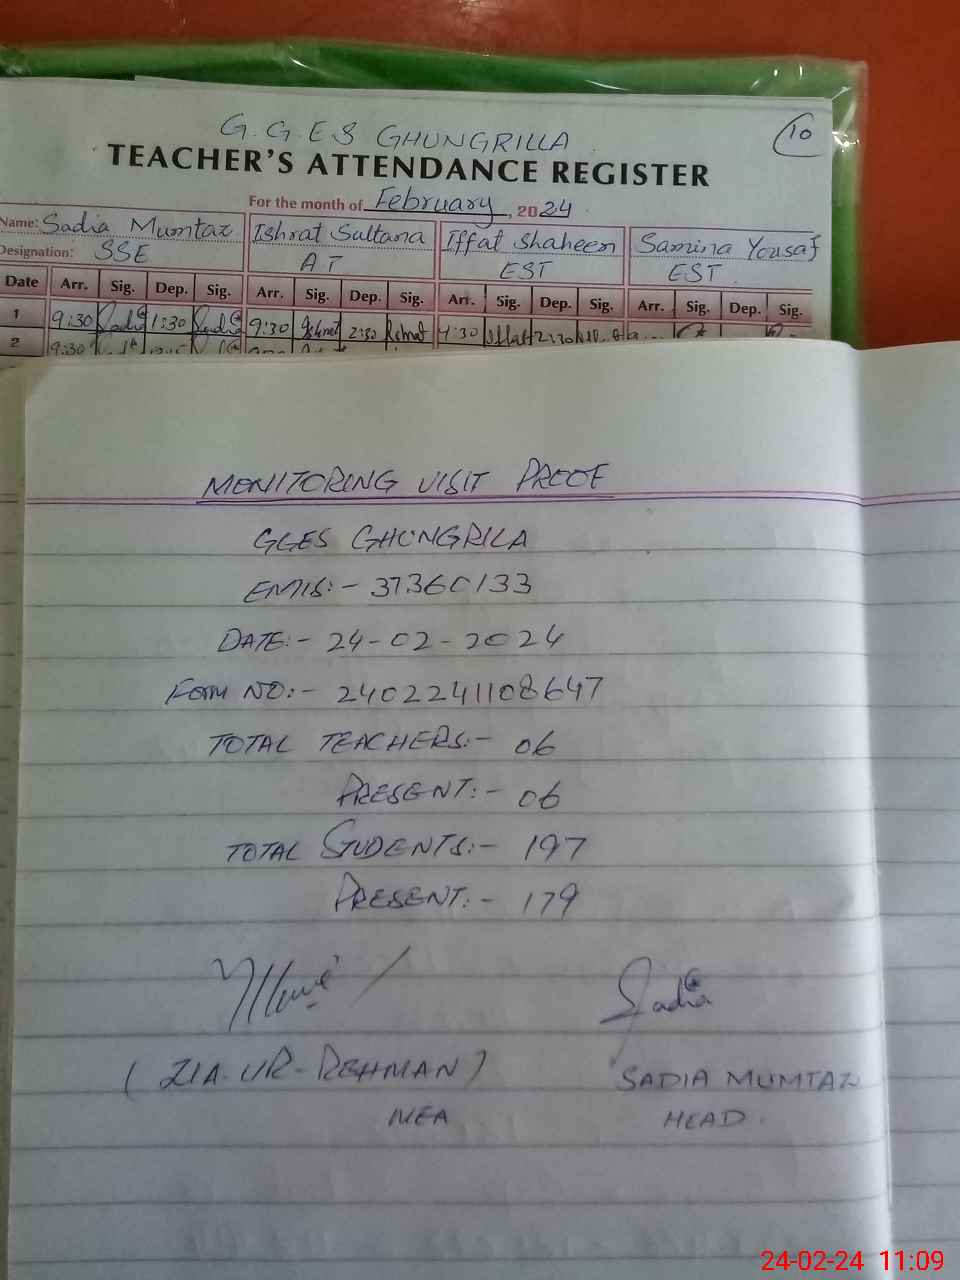 G.G.E.S GHUNGRILLA
10
TEACHER'S ATTENDANCE REGISTER
For the month of February, 2024
Name: Sadia Mumtaz Ishrat Sultana Iffat Shaheen Samina Yousaf
Designation: SSE AT EST EST
Date Arr. Sig. Dep. Sig. Arr. Sig. Dep. Sig. Arr. Sig. Dep. Sig. Arr. Sig. Dep. Sig.
1 9:30 Sadia 1:30 Sadia 9:30 Ishrat 2:30 Ishrat 9:30 Iffat 2:30
2 9:30
MONITORING VISIT PROOF
GGES GHUNGRILA
EMIS:- 37360133
DATE:- 24-02-2024
Form NO:- 2402241108647
TOTAL TEACHERS:- 06
PRESENT:- 06
TOTAL STUDENTS:- 197
PRESENT:- 179
Sadia
(ZIA-UR-REHMAN) SADIA MUMTAZ
MEA HEAD.
24-02-24 11:09